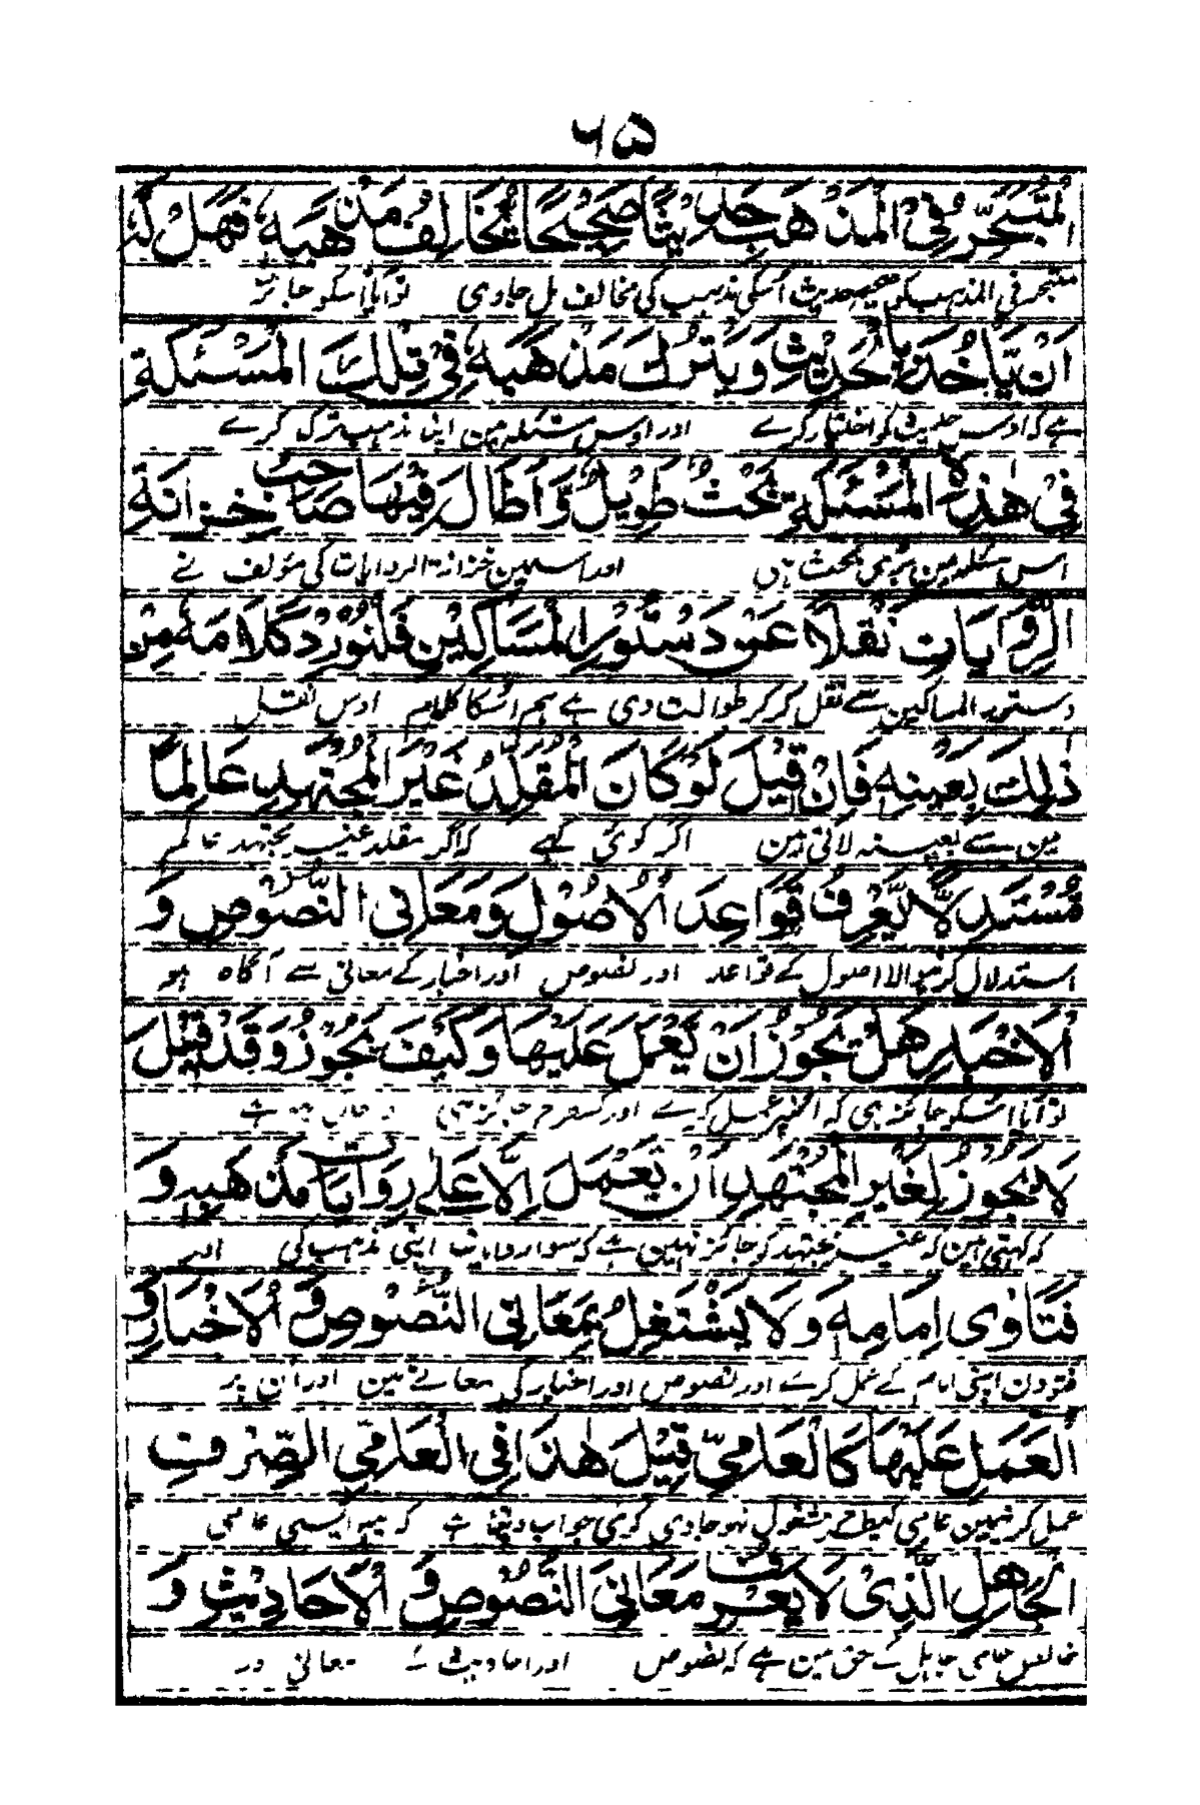 ٦٥
الْمُتَبَحِّرُ فِي الْمَذْهَبِ حَدِيْثًا صَحِيْحًا يُخَالِفُ مَذْهَبَهٗ فَهَلْ لَهٗ
متبحر فی المذہب کو صحیح حدیث اسکی مذہب کی مخالف مل جاوی تو آیا اسکو جائز
اَنْ يَّاْخُذَ بِالْحَدِيْثِ وَيَتْرُكَ مَذْهَبَهٗ فِيْ تِلْكَ الْمَسْئَلَةِ
ہے کہ اوس حدیث کو اختیار کرے اور اوس مسئلہ مین اپنا مذہب ترک کرے
فِيْ هٰذِهِ الْمَسْئَلَةِ بَحْثٌ طَوِيْلٌ وَّاَطَالَ فِيْهَا صَاحِبُ خِزَانَةِ
اس مسئلہ مین بڑی بحث ہی اور اسمین خزانة الروایات کی مؤلف نے
الرِّوَايَاتِ نَقْلًا عَنْ دَسْتُوْرِ الْمَسَاكِيْنِ فَلْنُوْرِدْ كَلَامَهٗ مِنْ
دستور المساکین سے نقل کر کر طوالت دی ہے ہم اُسکا کلام اوس نقل
ذٰلِكَ بِعَيْنِهٖ فَاِنْ قِيْلَ لَوْ كَانَ الْمُقَلِّدُ غَيْرَ الْمُجْتَهِدِ عَالِمًا
مین سے بعینہ لاتی ہین اگر کوئی کہے کہ اگر مقلد غیر مجتہد عالم
مُسْتَدِلًّا يَّعْرِفُ قَوَاعِدَ الْاُصُوْلِ وَمَعَانِي النُّصُوْصِ وَ
استدلال کرنیوالا اصول کے قواعد اور نصوص اور اخبار کے معانی سے آگاہ ہو
الْاَخْبَارِ هَلْ يَجُوْزُ اَنْ يَّعْمَلَ عَلَيْهَا وَكَيْفَ يَجُوْزُ وَقَدْ قِيْلَ
تو آیا اسکو جائز ہی کہ عمل کرے اور جائز ہی
لَا يَجُوْزُ لِغَيْرِ الْمُجْتَهِدِ اَنْ يَّعْمَلَ اِلَّا عَلٰى رِوَايَاتِ مَذْهَبِهٖ وَ
کہ کہتی ہین کہ غیر مجتہد کو جائز نہین ہے کہ سوا روایات اپنی مذہب کی اور
فَتَاوٰى اِمَامِهٖ وَلَا يَشْتَغِلُ بِمَعَانِي النُّصُوْصِ وَالْاَخْبَارِ وَ
فتوون اپنی امام کے عمل کرے اور نصوص اور اخبار کی معانے مین اور ان پر
الْعَمَلِ عَلَيْهَا كَالْعَامِيِّ قِيْلَ هٰذَا فِي الْعَامِيِّ الصِّرْفِ
عمل کرنیمین عامی کیطرح مشغول نہو جاوی جواب
الْجَاهِلِ الَّذِيْ لَا يَعْرِفُ مَعَانِيَ النُّصُوْصِ وَالْاَحَادِيْثِ وَ
خالص عامی جاہل کے حق مین ہے کہ نصوص اور احادیث کے معانی